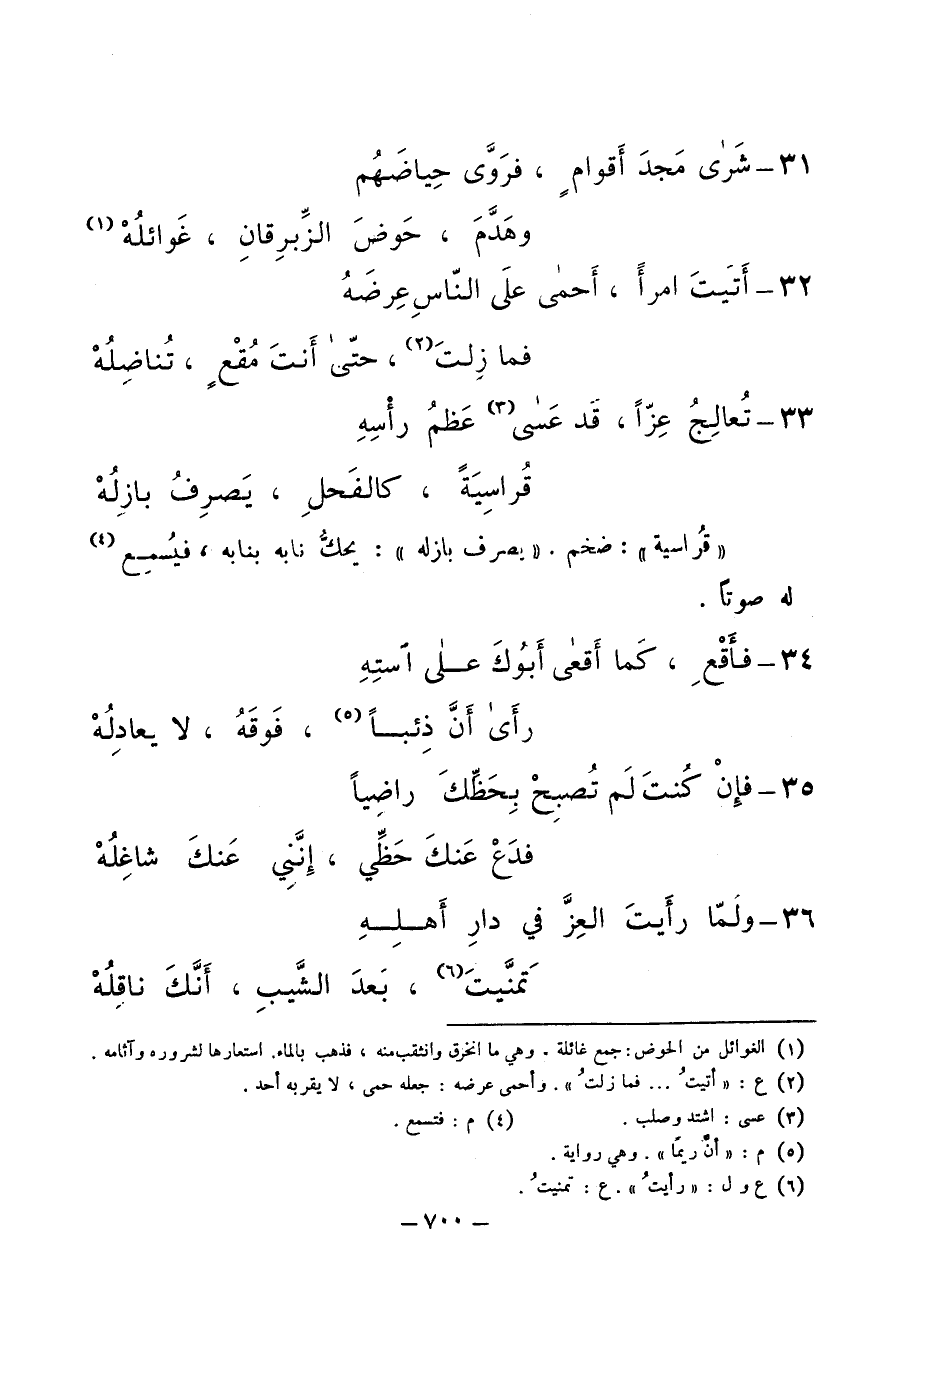 ٣١ – شَرٰى مَجدَ أَقوامٍ ، فرَوَّى حِياضَهُم
وهَدَّمَ ، حَوضَ الزِّبرِقانِ ، غَوائلُهْ (١)
٣٢ – أَتَيتَ امرأً ، أَحمٰى علَى النّاسِ عِرضَهُ
فما زِلتَ (٢) ، حتّىٰ أَنتَ مُقْعٍ ، تُناضِلُهْ
٣٣ – تُعالِجُ عِزّاً ، قَد عَسٰى (٣) عَظمُ رأْسِهِ
قُراسِيَةً ، كالفَحلِ ، يَصرِفُ بازِلُهْ
« قُراسية » : ضخم . « يصرف بازله » : يحكُّ نابه بنابه ، فيُسمِع (٤)
له صوتاً .
٣٤ – فأَقْعِ ، كَما أَقعٰى أَبُوكَ علٰى ٱستِهِ
رأَىٰ أَنَّ ذِئباً (٥) ، فَوقَهُ ، لا يعادِلُهْ
٣٥ – فإِنْ كُنتَ لَم تُصبِحْ بِحَظِّكَ راضِياً
فدَعْ عَنكَ حَظِّي ، إِنَّنِي عَنكَ شاغِلُهْ
٣٦ – ولَمّا رأَيتَ العِزَّ في دارِ أَهلِهِ
تَمنَّيتَ (٦) ، بَعدَ الشَّيبِ ، أَنَّكَ ناقِلُهْ
(١) الغوائل من الحوض : جمع غائلة . وهي ما انخرق وانثقب منه ، فذهب بالماء. استعارها لشروره وآثامه .
(٢) ع : « أتيتُ ... فما زلتُ » . وأحمى عرضه : جعله حمى ، لا يقربه أحد .
(٣) عسى : اشتد وصلب . (٤) م : فتسمع .
(٥) م : « أنَّ ريمًا » . وهي رواية .
(٦) ع و ل : « رأيتُ » . ع : تمنيتُ .
– ٧٠٠ –